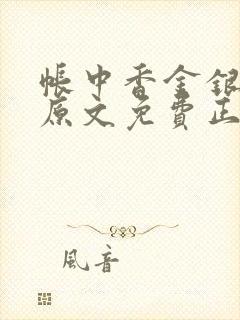 帳中香金銀
原文免費正
風音